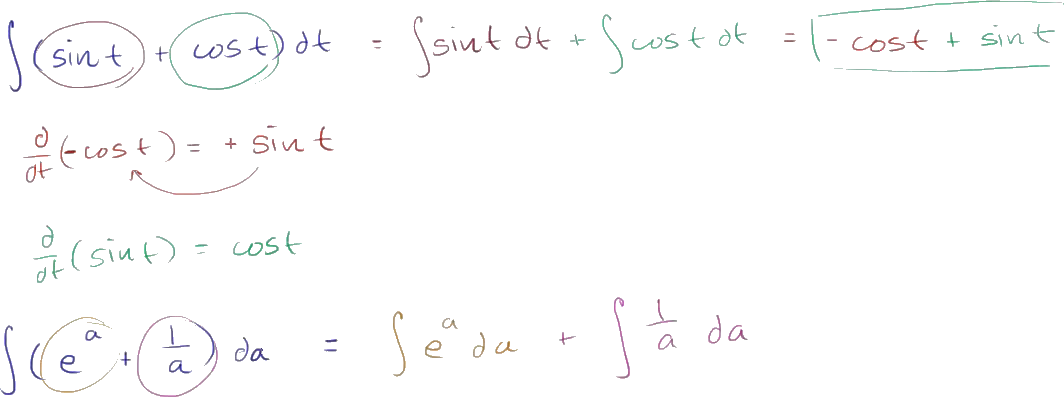 ∫(sin t + cos t) dt = ∫sin t dt + ∫cos t dt = - cos t + sin t
d/dt (-cos t) = + sin t
d/dt (sin t) = cos t
∫(e^a + 1/a) da = ∫e^a da + ∫ 1/a da